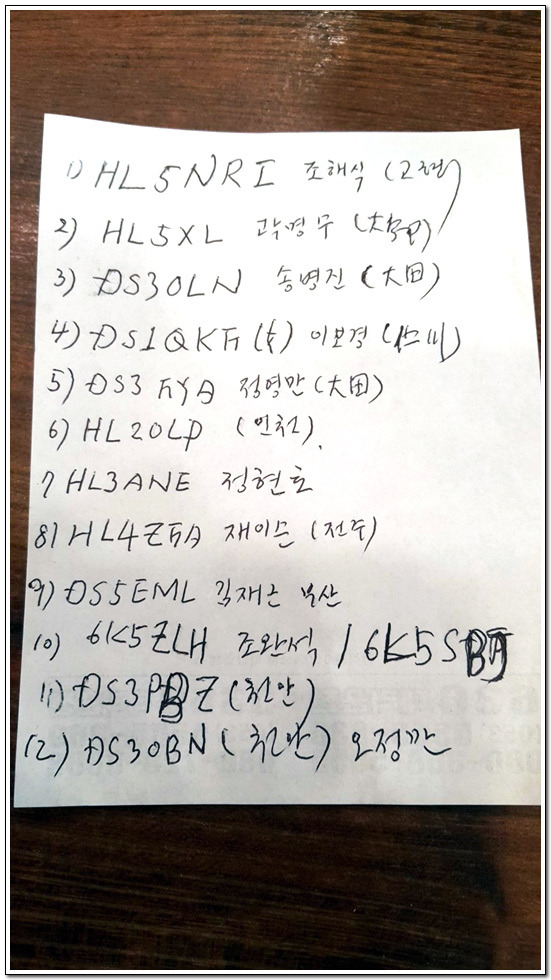 1) HL5NRI 조해식 (고령)
2) HL5XL 곽경무 (大邱)
3) DS3OLN 송병진 (大田)
4) DS1QKF (女) 이보경
5) DS3FYA 정영만 (大田)
6) HL2OLP (인천).
7 HL3ANE 정현호
8) HL4ZFA 재이는 (전주)
9) DS5EML 김재근 부산
10) 6K5ZLH 조완석 / 6K5SBJ
11) DS3PBZ (천안)
12) DS3OBN (천안) 오정깐